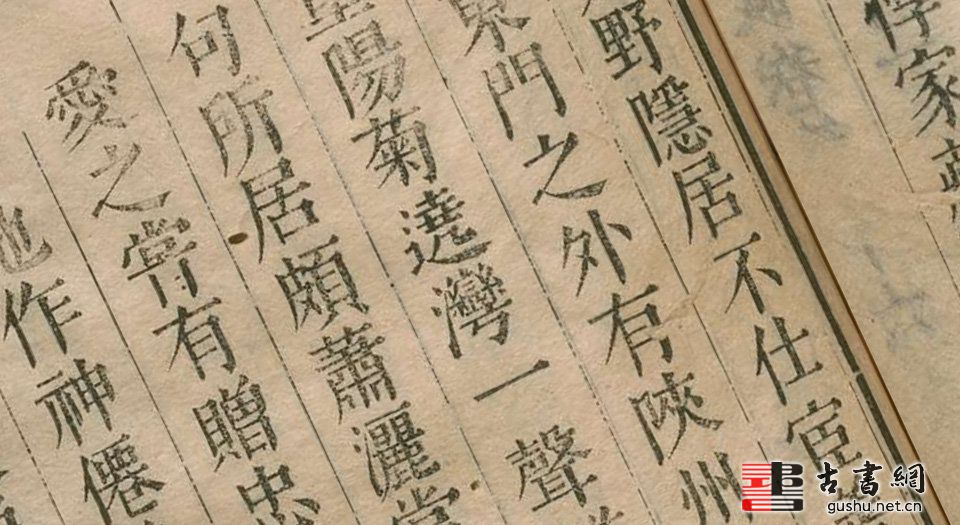 倅家
野隱居不仕宦
東門之外有陝州
陽菊遶灣一聲
句所居頗蕭灑
愛之嘗有贈
作神僊
古書網
gushu.net.cn